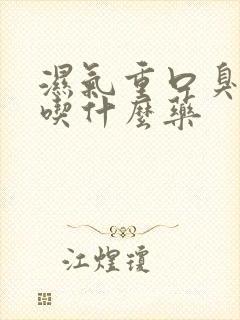 濕氣重口臭
喫什麼藥
江煌瓊